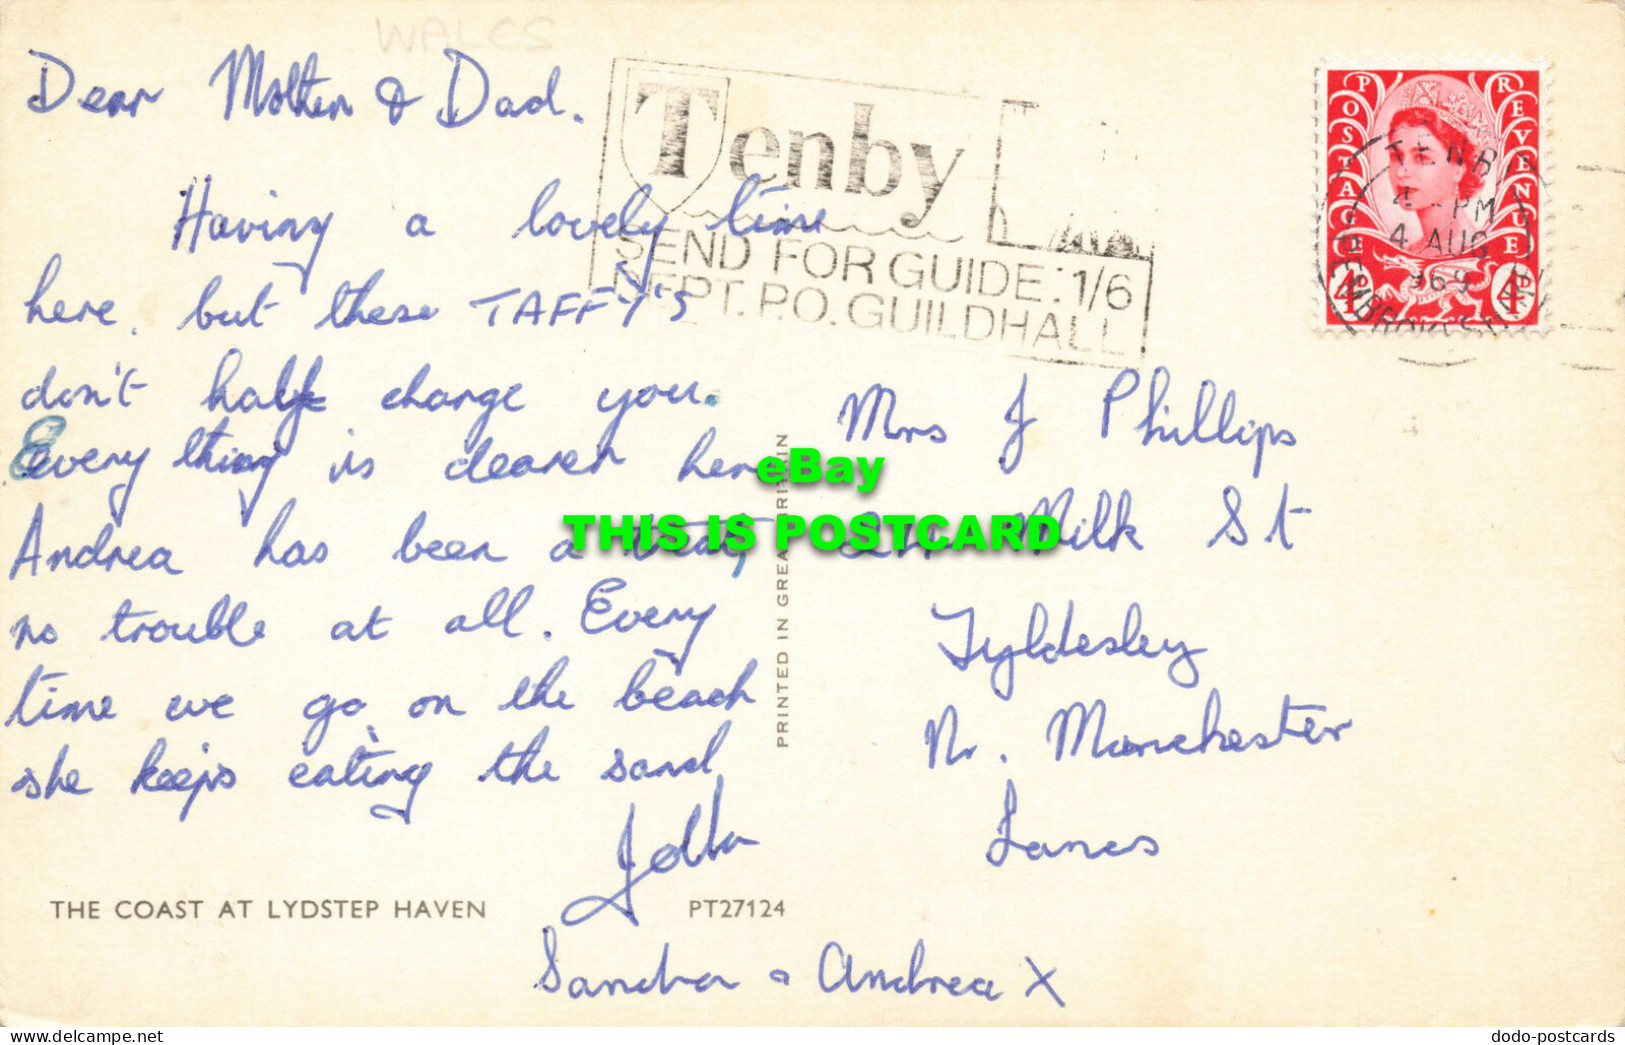 WALES
Dear Mother & Dad.
Having a lovely time
here. but these TAFFY'S
don't half charge you.
Every thing is dearer here
Andrea has been a treat,
no trouble at all. Every
time we go on the beach
she keeps eating the sand
John
Sandra & Andrea X
THE COAST AT LYDSTEP HAVEN
PT27124
PRINTED IN GREAT BRITAIN
Tenby
SEND FOR GUIDE: 1/6
DEPT. P.O. GUILDHALL
POSTAGE REVENUE
4D 4D
TENBY
4 - PM
4 AUG
1969
PEMBROKESHIRE
Mrs J Phillips
Milk St
Tyldesley
Nr. Manchester
Lancs
eBay
THIS IS POSTCARD
Delcampe.net
dodo-postcards